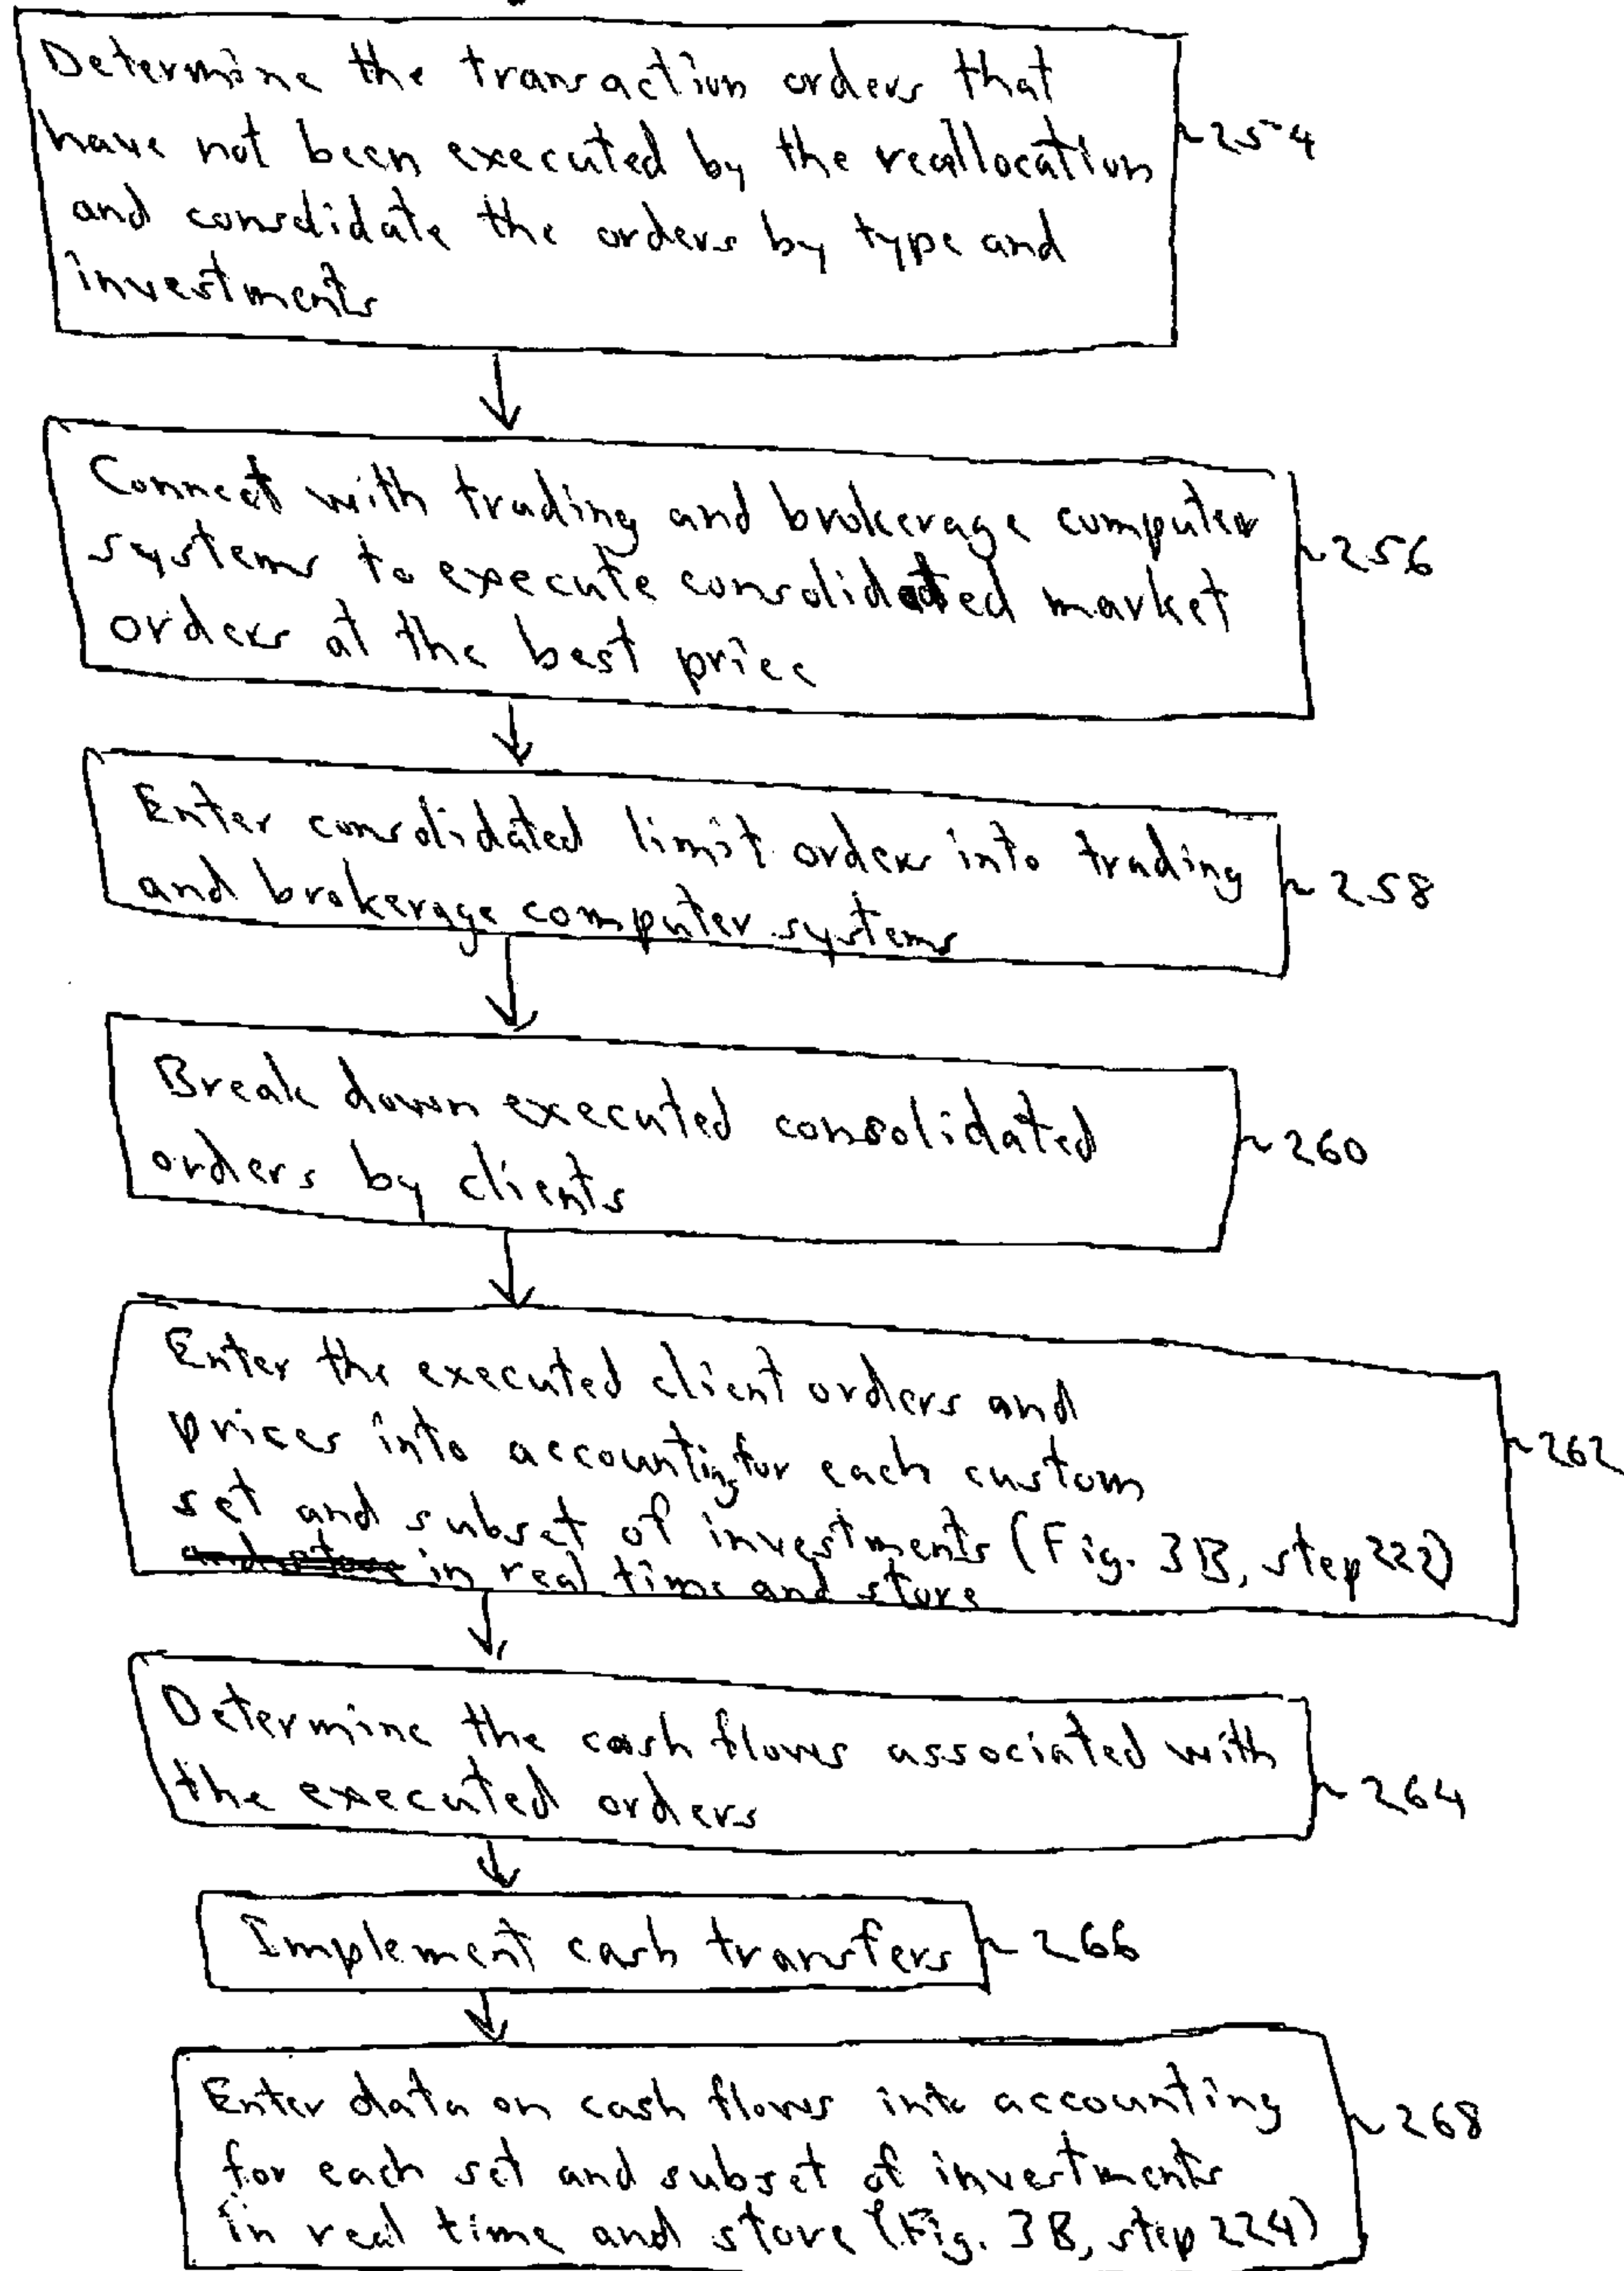 Determine the transaction orders that
have not been executed by the reallocation
and consolidate the orders by type and
investments
~254
Connect with trading and brokerage computer
systems to execute consolidated market
orders at the best price
~256
Enter consolidated limit orders into trading
and brokerage computer systems
~258
Break down executed consolidated
orders by clients
~260
Enter the executed client orders and
prices into accounting for each custom
set and subset of investments (Fig. 3B, step 222)
in real time and store
~262
Determine the cash flows associated with
the executed orders
~264
Implement cash transfers
~266
Enter data on cash flows into accounting
for each set and subset of investments
in real time and store (Fig. 3B, step 224)
~268